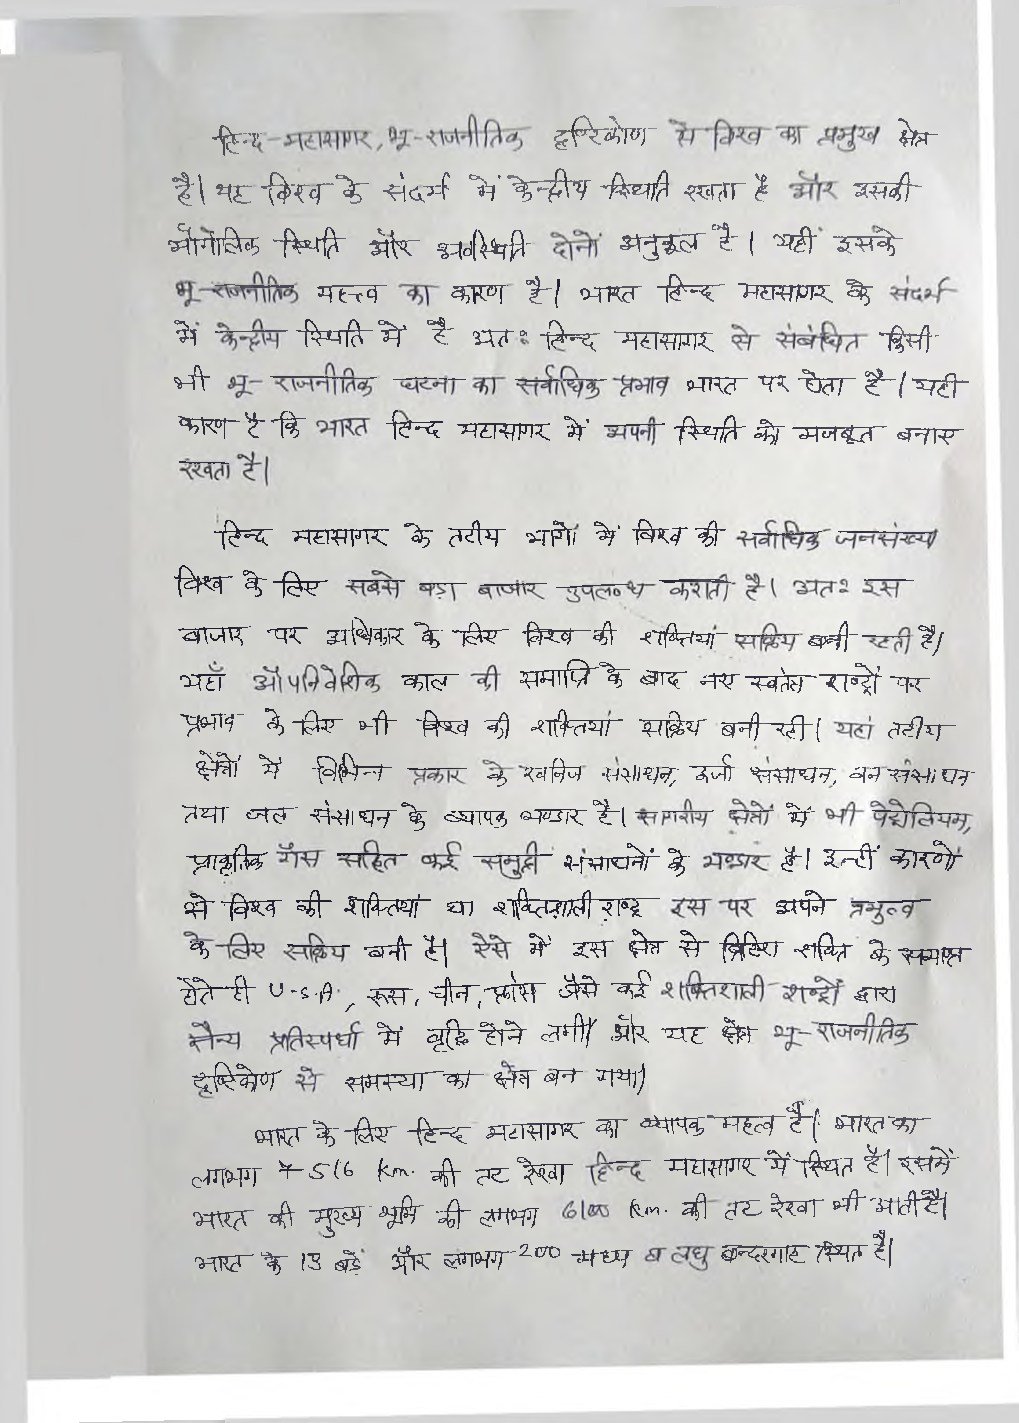 हिन्द-महासागर, भू-राजनीतिक दृष्टिकोण से विश्व का प्रमुख क्षेत्र
है। यह विश्व के संदर्भ में केन्द्रीय स्थिति रखता है और इसकी
भौगोलिक स्थिति और अवस्थिती दोनों अनुकूल है। यहीं इसके
भू-राजनीतिक महत्त्व का कारण है। भारत हिन्द महासागर के संदर्भ
में केन्द्रीय स्थिति में है अतः हिन्द महासागर से संबंधित किसी
भी भू-राजनीतिक घटना का सर्वाधिक प्रभाव भारत पर होता है। यही
कारण है कि भारत हिन्द महासागर में अपनी स्थिति को मजबूत बनाए
रखता है।
हिन्द महासागर के तटीय भागों में विश्व की सर्वाधिक जनसंख्या
विश्व के लिए सबसे बड़ा बाजार उपलब्ध कराती है। अतः इस
बाजार पर अधिकार के लिए विश्व की शक्तियां सक्रिय बनी रहती है।
यहाँ औपनिवेशिक काल की समाप्ति के बाद नए स्वतंत्र राष्ट्रों पर
प्रभाव के लिए भी विश्व की शक्तियां सक्रिय बनी रही। यहां तटीय
क्षेत्रों में विभिन्न प्रकार के खनिज संसाधन, उर्जा संसाधन, वन संसाधन
तथा जल संसाधन के व्यापक भण्डार है। सागरीय क्षेत्रों में भी पेट्रोलियम,
प्राकृतिक गैस सहित कई समुद्री संसाधनों के भण्डार है। इन्हीं कारणों
से विश्व की शक्तियां या शक्तिशाली राष्ट्र इस पर अपने प्रभुत्व
के लिए सक्रिय बनी है। ऐसे में इस क्षेत्र से ब्रिटिश शक्ति के समाप्त
होते ही U.S.A., रूस, चीन, फ्रांस जैसे कई शक्तिशाली राष्ट्रों द्वारा
सैन्य प्रतिस्पर्धा में वृद्धि होने लगी। और यह क्षेत्र भू-राजनीतिक
दृष्टिकोण से समस्या का क्षेत्र बन गया।
भारत के लिए हिन्द महासागर का व्यापक महत्व है। भारत का
लगभग 7516 Km. की तट रेखा हिन्द महासागर में स्थित है। इसमें
भारत की मुख्य भूमि की लगभग 6100 Km. की तट रेखा भी आती है।
भारत के 13 बड़ें और लगभग 200 मध्य व लघु बन्दरगाह स्थित है।